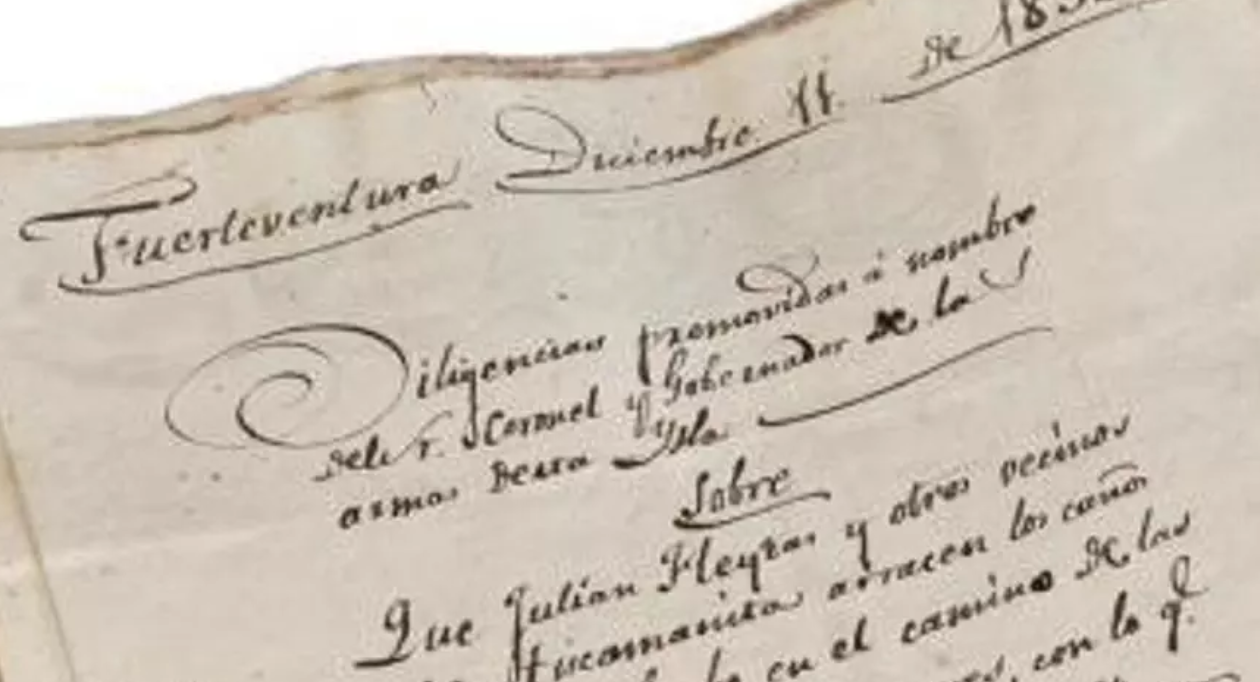 Fuerteventura Diciembre 11 de 183
Diligencias promovidas á nombre
del Sr. Coronel y Gobernador de las
armas desta Ysla
Sobre
Que Julian Fleytas y otros vecinos
tucamanita arracen los caños
en el camino de las
con lo q.